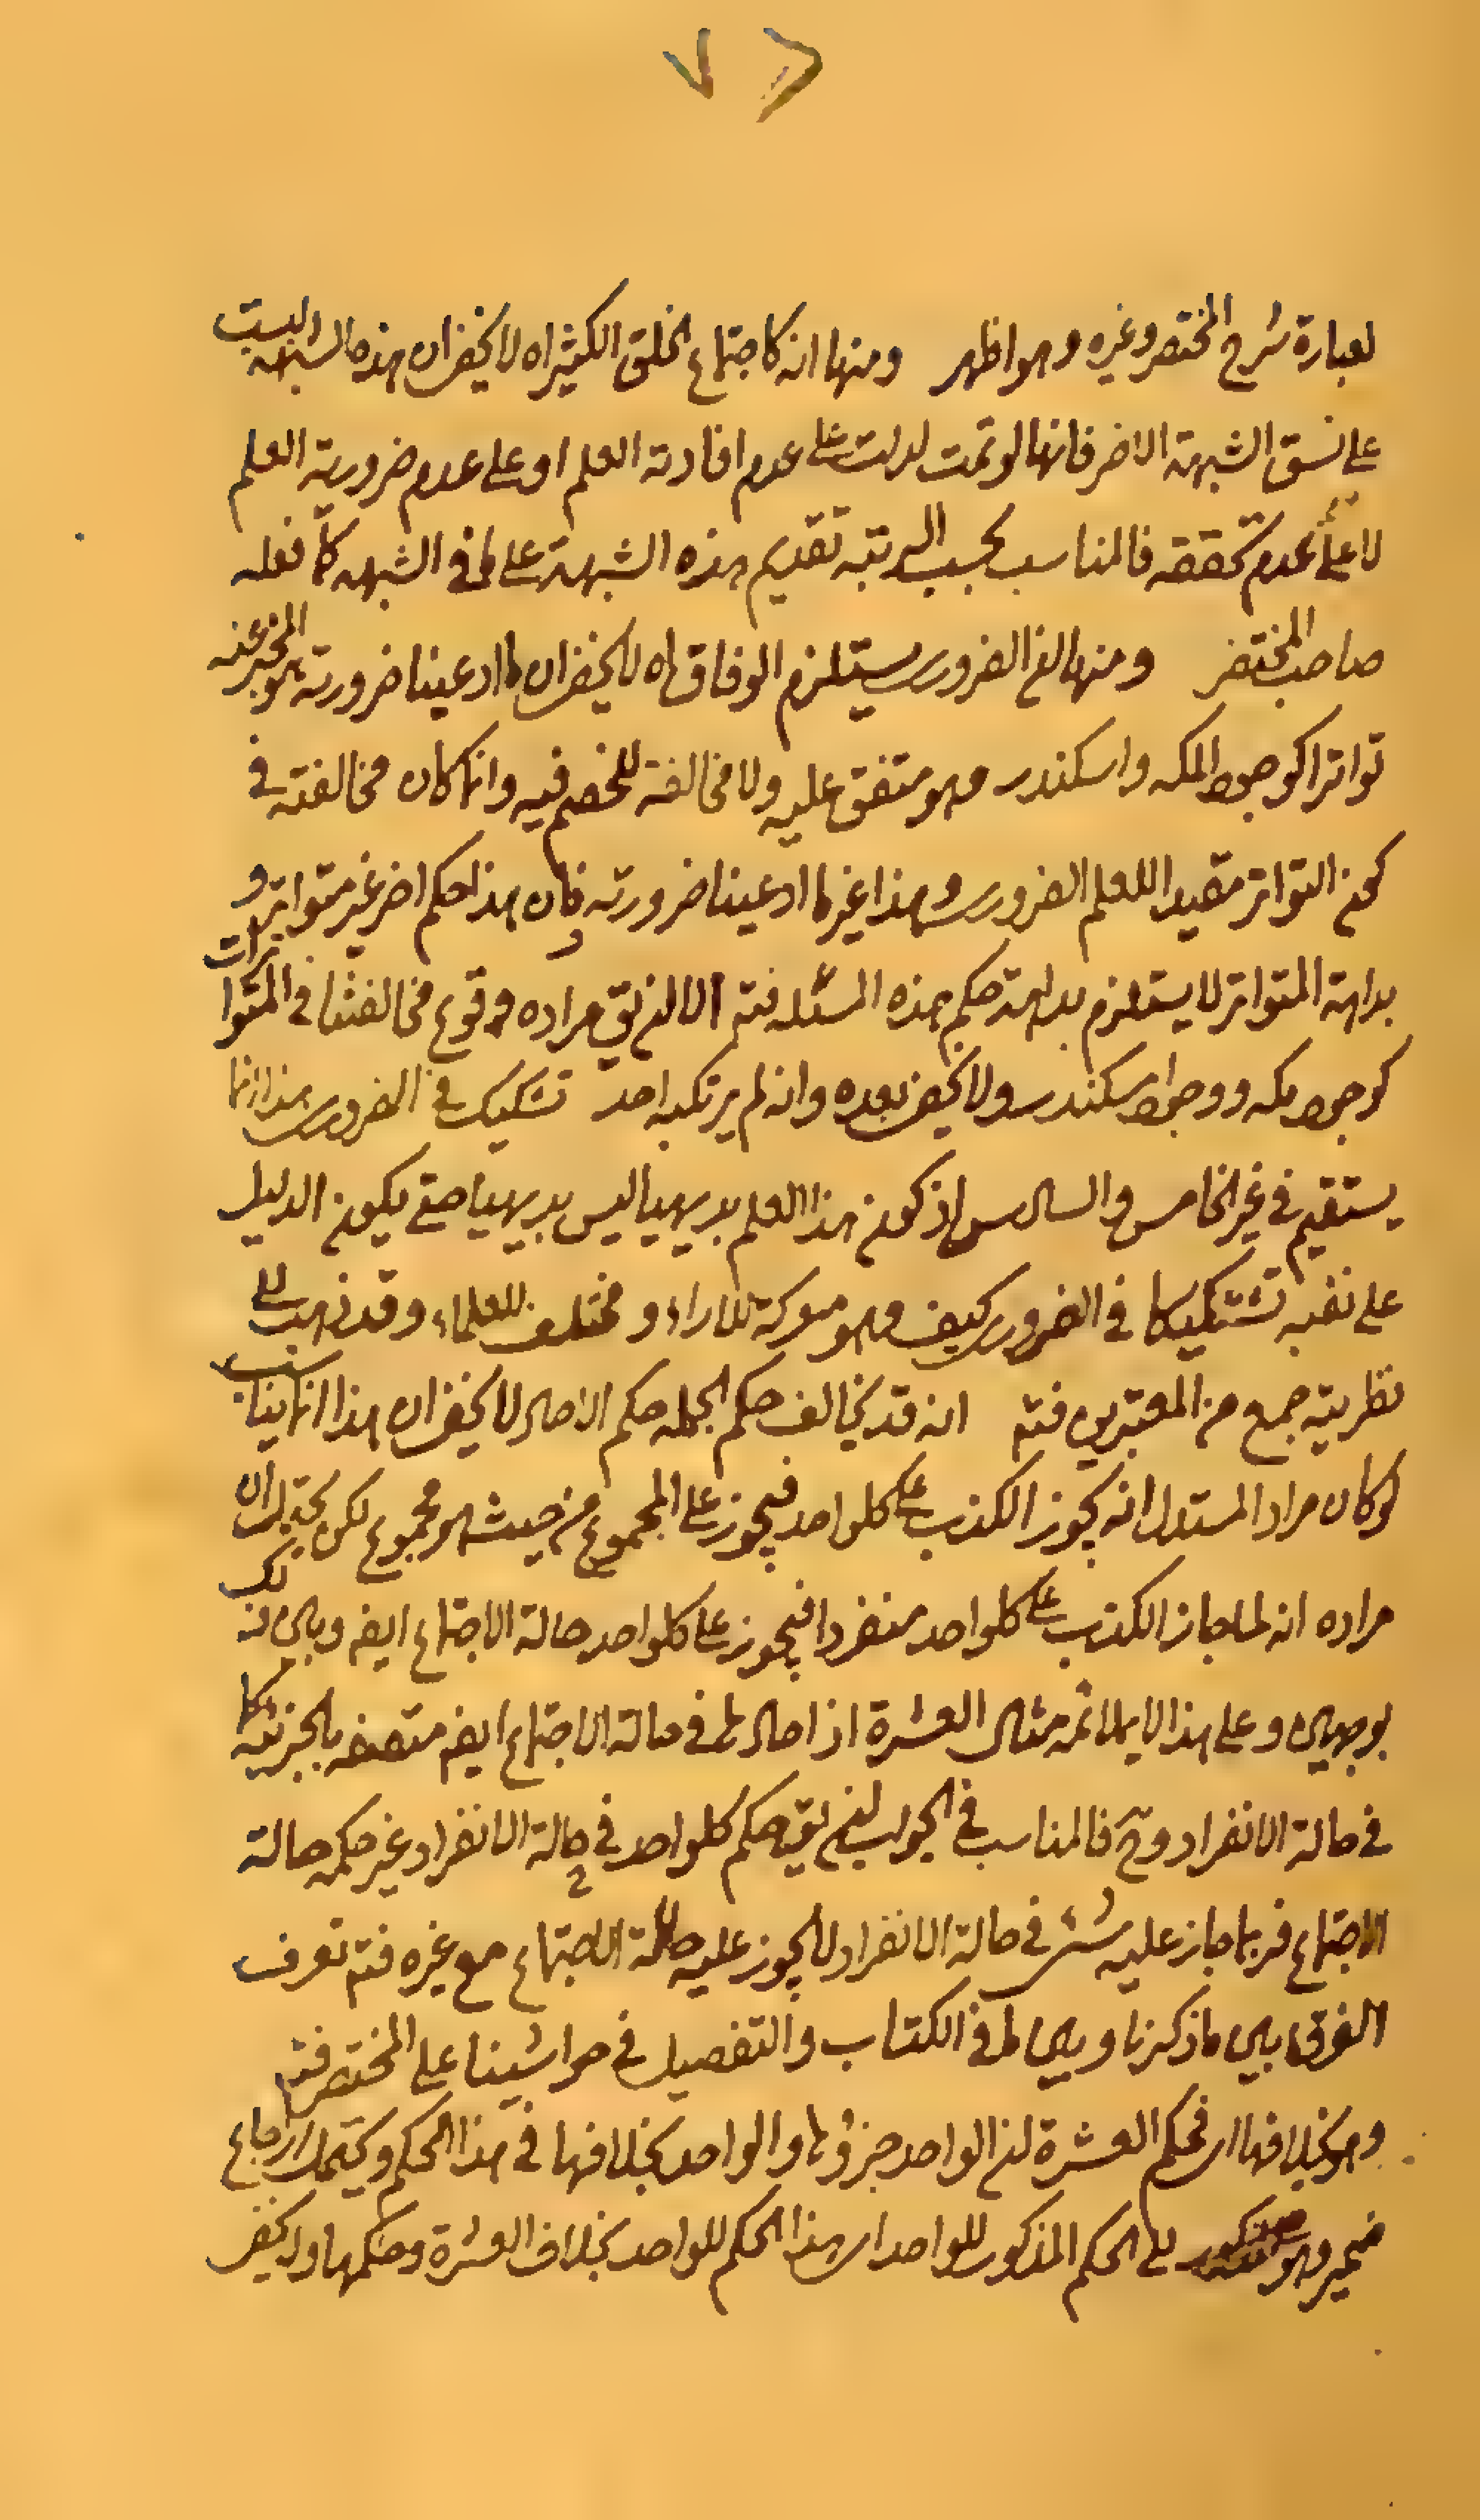 لعبارة شرح المختصر وغيره وهو اظهر ومنها انه كاجتماع الخلق الكثير اه لا يخفى ان هذه الشبهة ليست
على نسق الشبهة الاخر فانها لو تمت لدلت على عدم افادته العلم او على عدم ضرورية العلم
لا على عدم تحققه فالمناسب بحسب الرتبة تقديم هذه الشبهة على ما فى الشبهه كما فعله
صاحب المختصر ومنها ان الضرورى يستلزم الوفاق اه لا يخفى ان ما ادعينا ضرورته هو المخبر عنه
تواترا كوجود المكه واسكندر وهو متفق عليه ولا مخالفة للخصم فيه وانما كان مخالفته فى
كون التواتر مفيدا للعلم الضرورى وهذا غير ما ادعينا ضرورته فان هذا حكم اخر غير متواتر و
بداهة المتواتر لا يستلزم بداهة حكم هذه المسئله فتم الا ان يق مراده وقوع مخالفتنا فى المتواترات
كوجود مكه ووجود اسكندر ولا يخفى بعده وانه لم يرتكبه احد تشكيك فى الضرورى هذا انما
يستقيم فى غير الخامس والسادس اذ كون هذا العلم بديهيا ليس بديهيا حتى يكون الدليل
على نفيه تشكيكا فى الضرورى كيف وهو معركة للاراء ومختلف للعلماء وقد ذهب الى
نظريته جمع من المعتبرين فتم انه قد يخالف حكم الجمله حكم الاحاد لا يخفى ان هذا انما يناسب
لو كان مراد المستدل انه يجوز الكذب على كلواحد فيجوز على المجموع من حيث هو مجموع لكن يحتمل ان
مراده انه لما جاز الكذب على كلواحد منفردا فيجوز على كلواحد حالة الاجتماع ايض وبين ذلك
بوجهين وعلى هذا لا يلائمه مثال العشرة اذ احادها فى حالة الاجتماع ايض متصفه بالجزئية كما
فى حالة الانفراد وح فالمناسب فى الجواب ان يق حكم كلواحد فى حالة الانفراد غير حكمه حالة
الاجتماع فربما جاز عليه شئ فى حالة الانفراد لا يجوز عليه حالة الاجتماع مع غيره فتم تعرف
الفرق بين ما ذكرنا وبين ما فى الكتاب والتفصيل فى حواشينا على المختصر فتم
وهو بخلافها اى فحكم العشرة ان الواحد جزؤها والواحد بخلافها فى هذا الحكم ويحتمل ارجاع
ضمير وهو الى الحكم المذكور للواحد اى هذا الحكم للواحد بخلاف العشرة وحكمها ولا يخفى